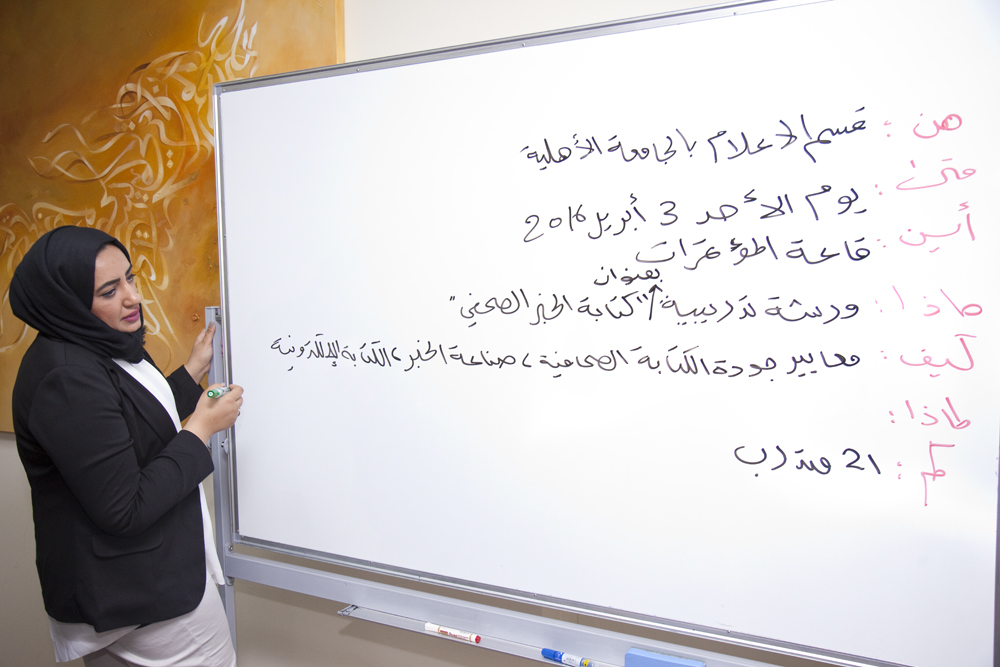 من : قسم الاعلام بالجامعة الأهلية
متى : يوم الأحد 3 أبريل 2016
أين : قاعة المؤتمرات
ماذا : ورشة تدريبية / بعنوان "كتابة الخبر الصحفي"
كيف : معايير جودة الكتابة الصحافية ، صناعة الخبر ، الكتابة الإلكترونية
لماذا :
كم : 21 متدرب